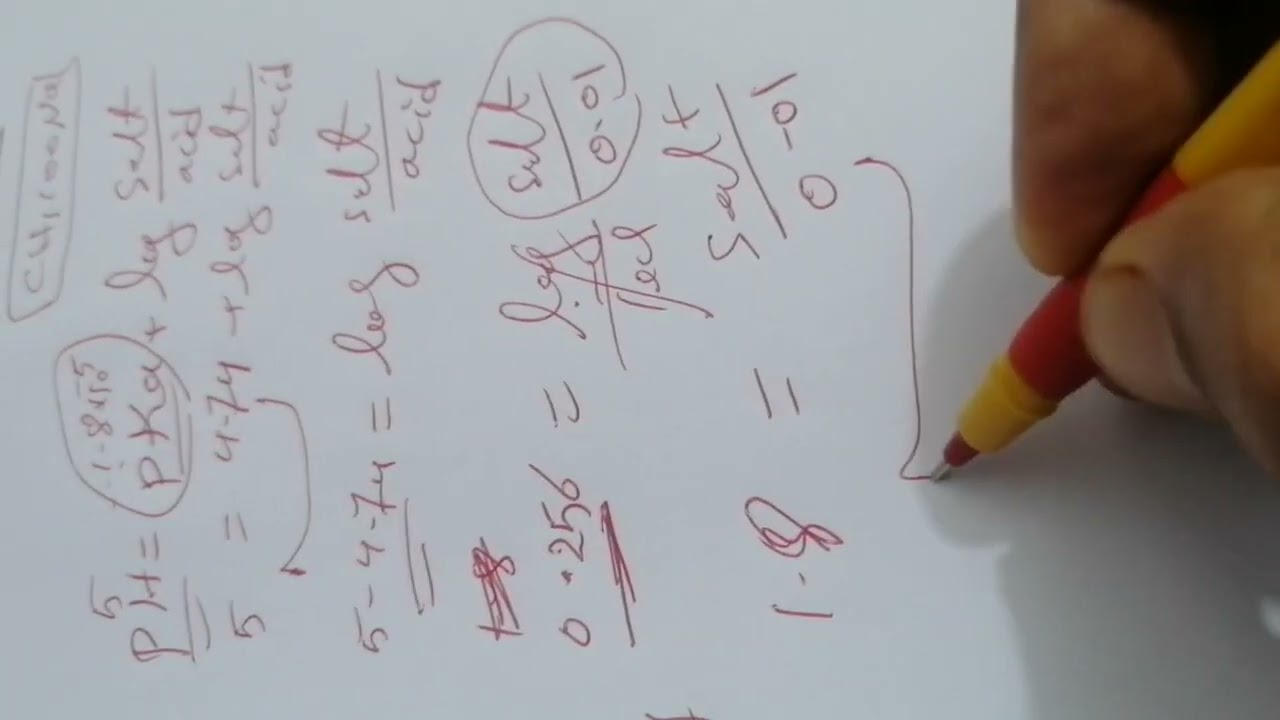 CH3COONa
1.8×10^-5
5
pH = pKa + log salt/acid
5 = 4.74 + log salt/acid
5-4.74 = log salt/acid
0.256 = log salt/0.01
1.8 = salt/0.01